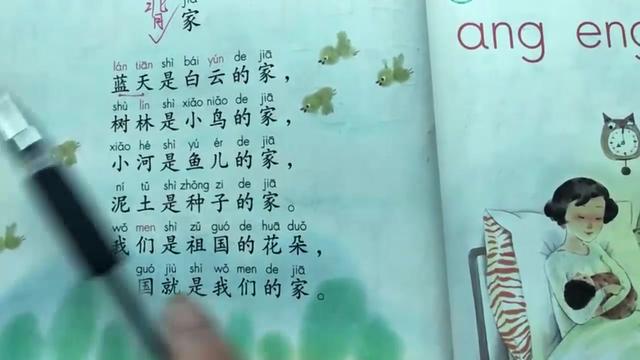 背
jiā
家
lán tiān shì bái yún de jiā
蓝天是白云的家，
shù lín shì xiǎo niǎo de jiā
树林是小鸟的家，
xiǎo hé shì yú ér de jiā
小河是鱼儿的家，
ní tǔ shì zhǒng zi de jiā
泥土是种子的家。
wǒ men shì zǔ guó de huā duǒ
我们是祖国的花朵，
guó jiù shì wǒ men de jiā
国就是我们的家。
ang eng